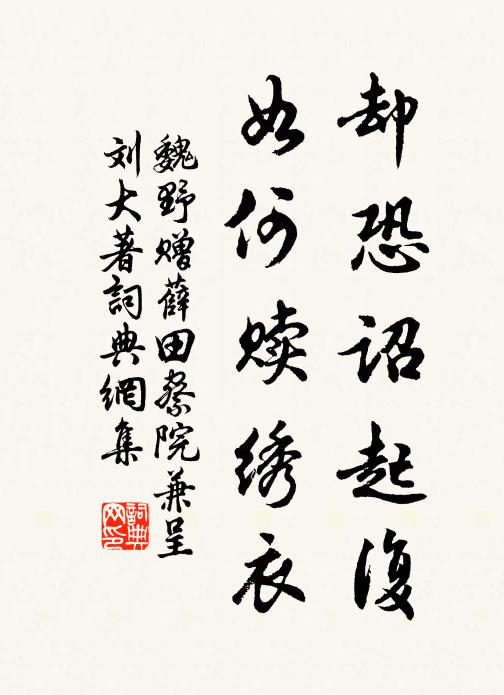 却恐诏起復
如何赎绣衣
魏野赠薛田察院兼呈
刘大著詞典網集
詞典網印